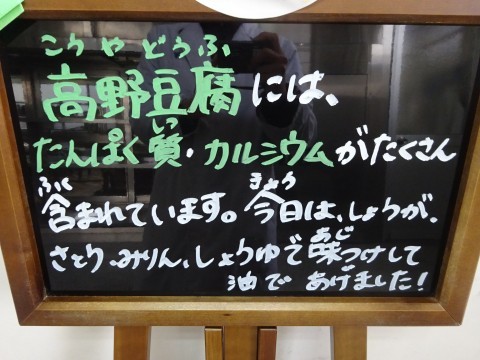 こうやどうふ
高野豆腐には、
たんぱく質・カルシウムがたくさん
含まれています。今日は、しょうが、
さとう、みりん、しょうゆで味つけして
油であげました!